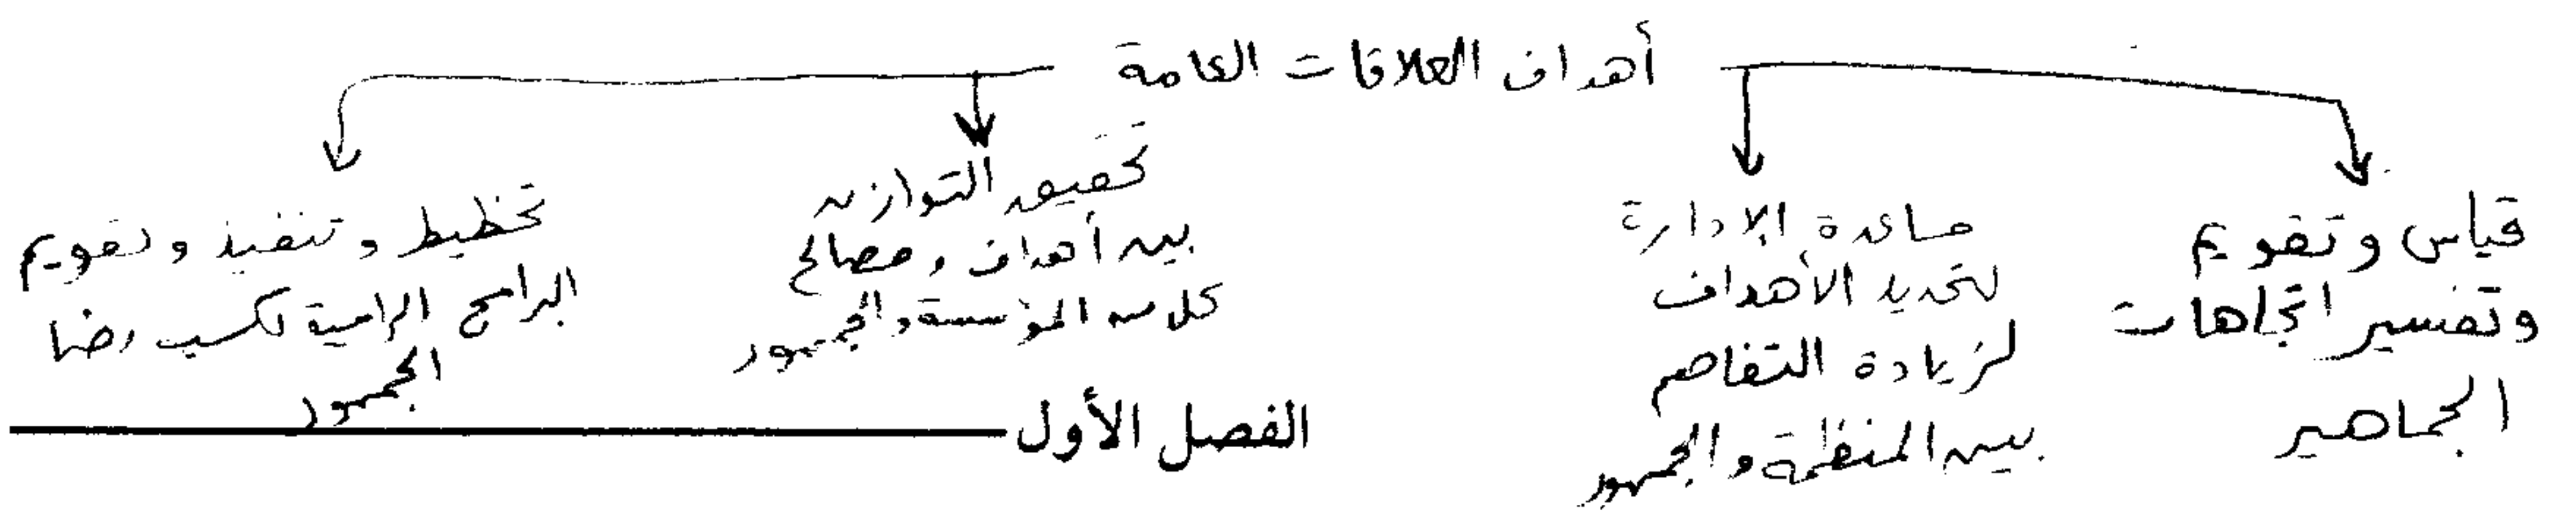 أهداف العلاقات العامة
قياس وتقويم
وتفسير اتجاهات
الجماهير
مساعدة الإدارة
لتحديد الأهداف
لزيادة التفاهم
بين المنظمة والجمهور
تحقيق التوازن
بين أهداف ومصالح
كل من المؤسسة والجمهور
تخطيط وتنفيذ وتقويم
البرامج الرامية لكسب رضا
الجمهور
الفصل الأول